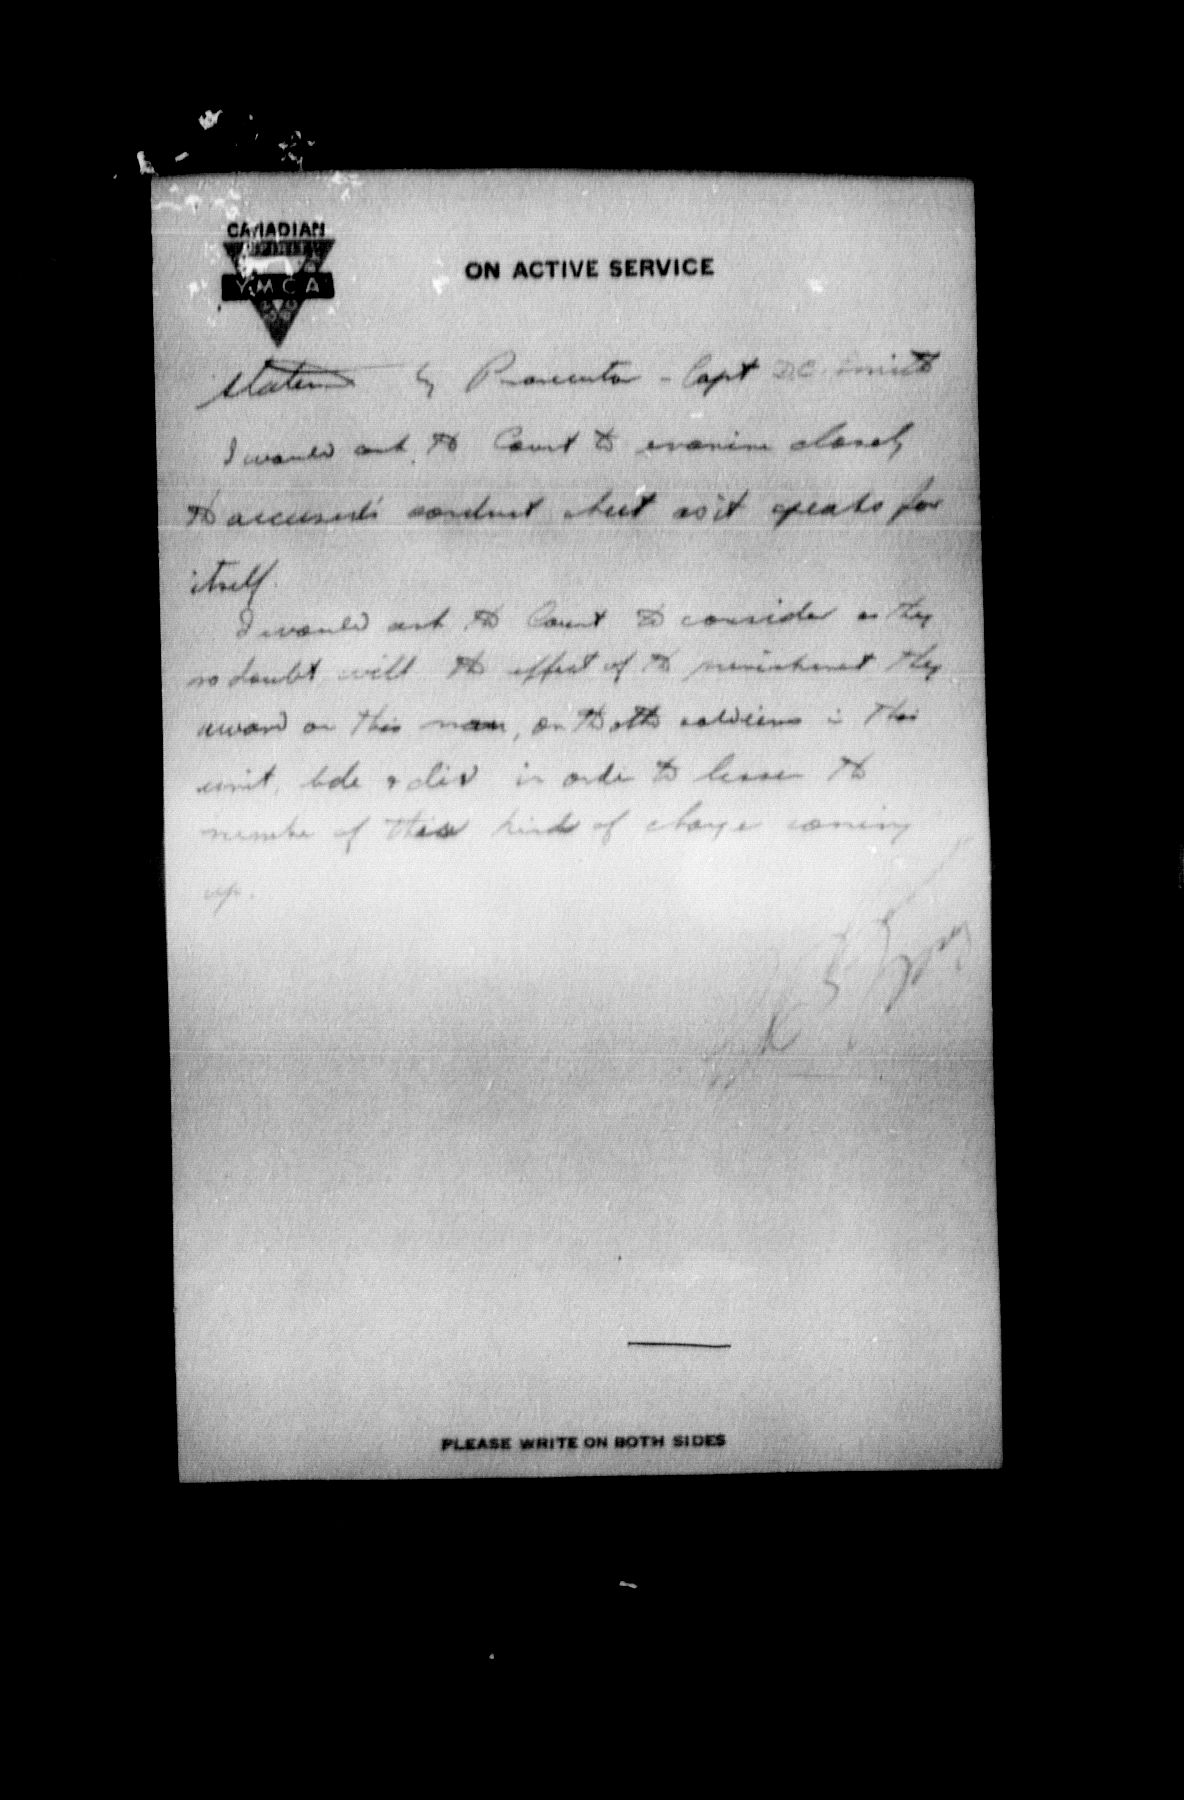 CANADIAN
YMCA
ON ACTIVE SERVICE
Statement by Prosecutor - Capt D.C. Smith
I would ask the Court to examine closely
the accused's conduct sheet as it speaks for
itself.
I would ask the Court to consider as they
no doubt will the effect of the punishment they
award on this man, on the other soldiers in this
unit, bde & div in order to lessen the
number of this kind of charge coming
up.
PLEASE WRITE ON BOTH SIDES